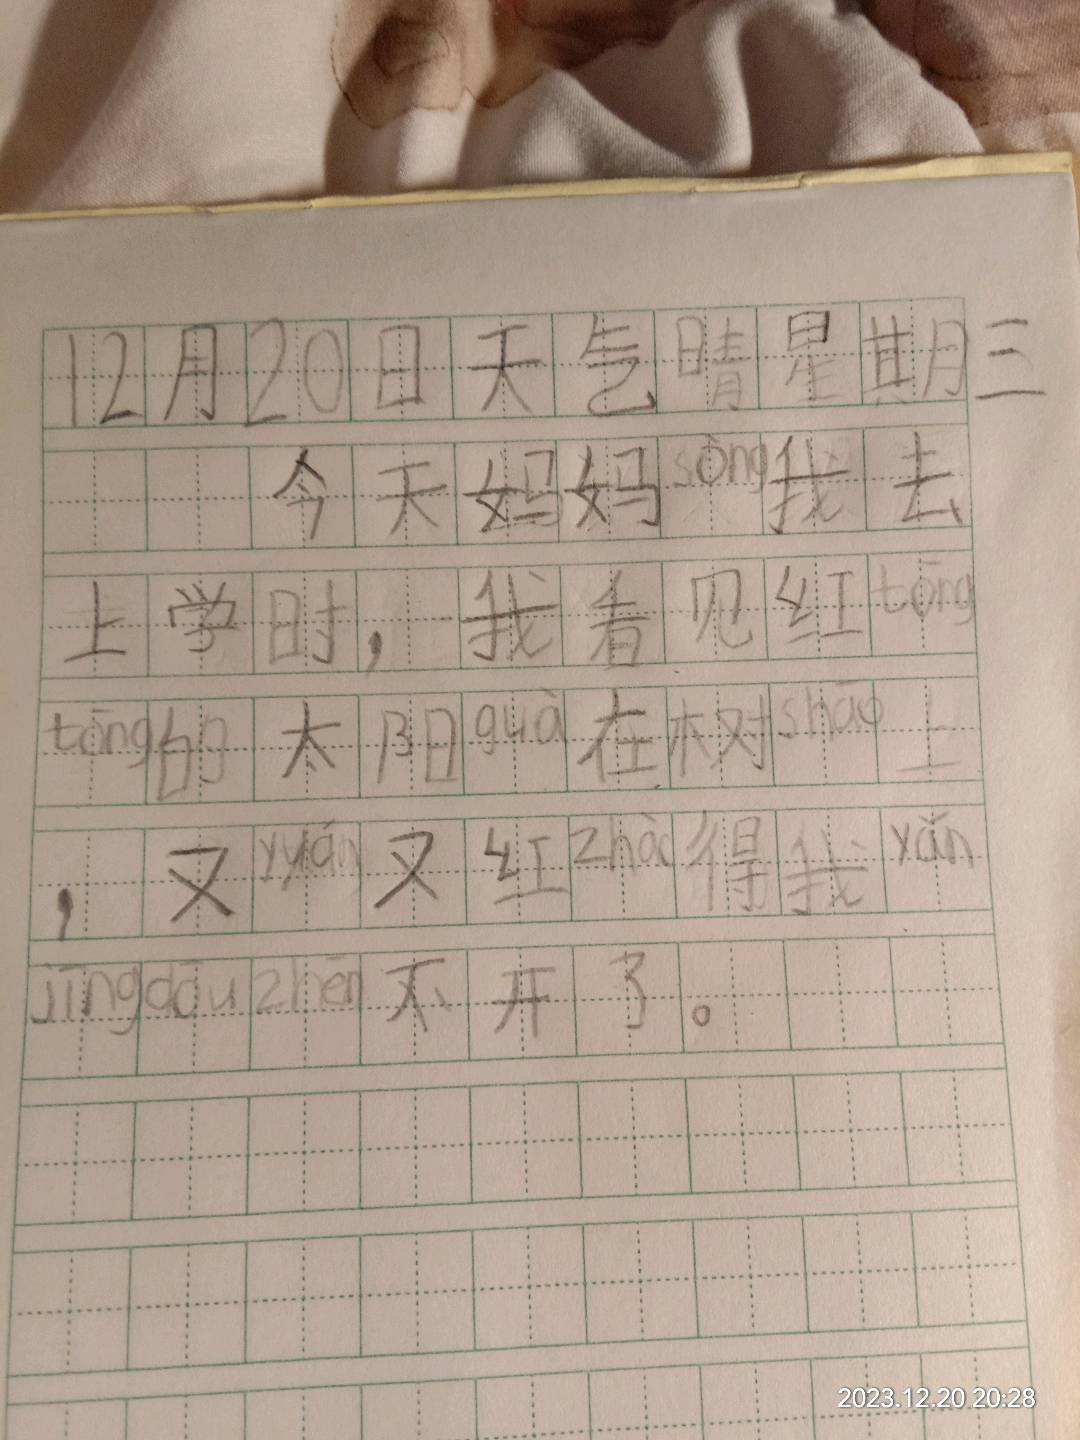 12月20日天气晴星期三
今天妈妈sòng我去
上学时，我看见红tōng
tōng的太阳guà在树shāo上
，又yyuán又红zhào得我yǎn
jīngdōuzhēn不开了。
2023.12.20 20:28